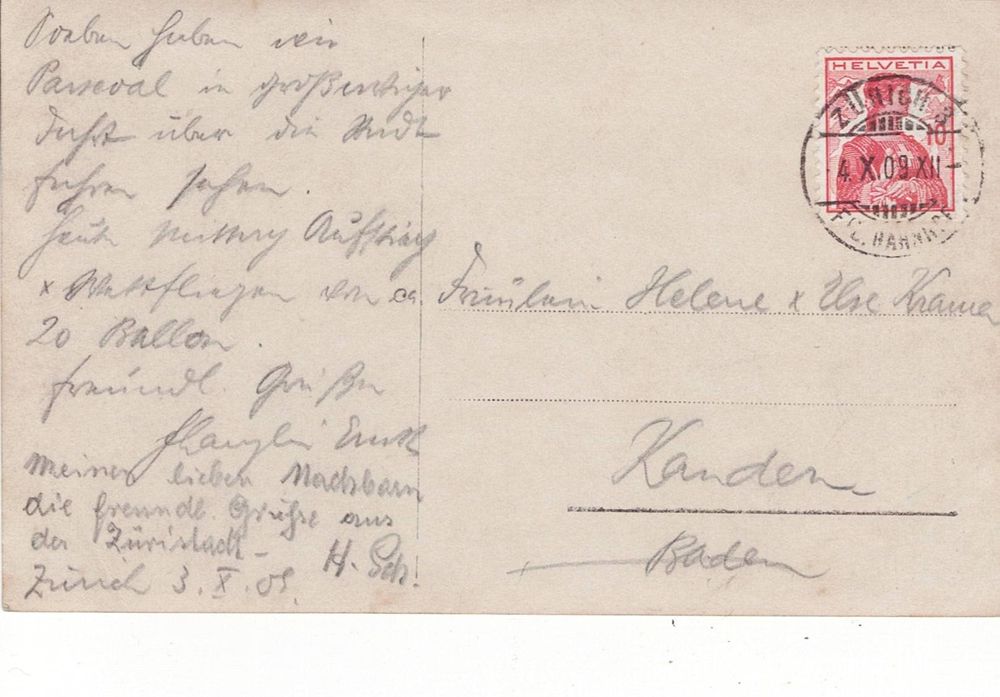 Soeben haben wir
Parseval in großartiger
Fahrt über die Stadt
fahren sehen.
Heute Mittag Aufstieg
x Wettfliegen von ca.
20 Ballon.
freundl. Grüße
Ernst
Meinen lieben Nachbarn
die freundl. Grüsse aus
der Züristadt –
H. Sch.
Zürich 3. X. 09.
HELVETIA
10
ZÜRICH 3
4. X. 09 XII –
FIL. BAHNHOF
Fräulein Helene x Else Kramer
Kandern
Baden